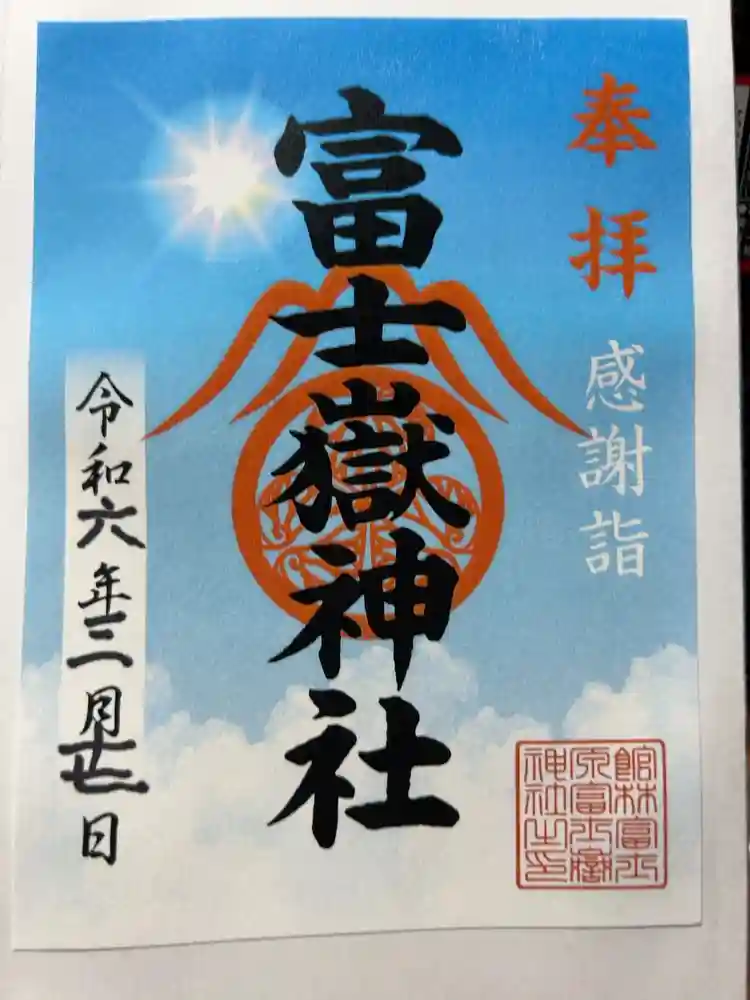 奉拝
感謝詣
富士嶽神社
令和六年三月日
館林富士
原富士嶽
神社之印